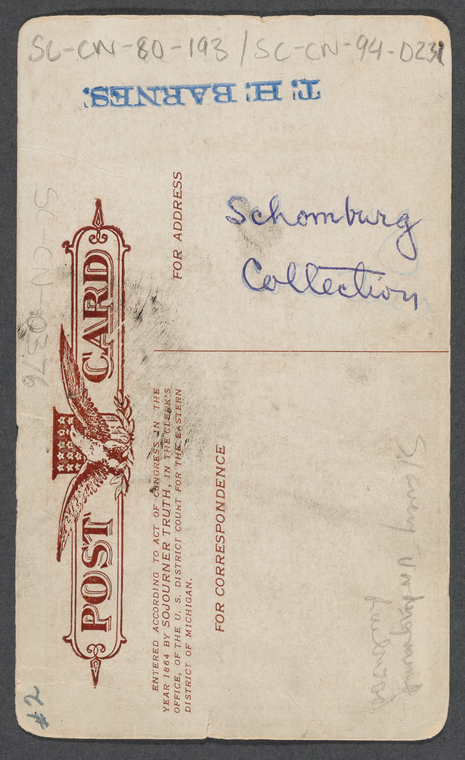 SC-CN-80-193 / SC-CN-94-0231
T. H. BARNES.
Schomburg
Collection
SC-CN-0376
POST CARD
FOR ADDRESS
ENTERED ACCORDING TO ACT OF CONGRESS IN THE
YEAR 1864 BY SOJOURNER TRUTH, IN THE CLERK'S
OFFICE, OF THE U. S. DISTRICT COURT FOR THE EASTERN
DISTRICT OF MICHIGAN.
FOR CORRESPONDENCE
Slavery - Underground
Railroad
#2